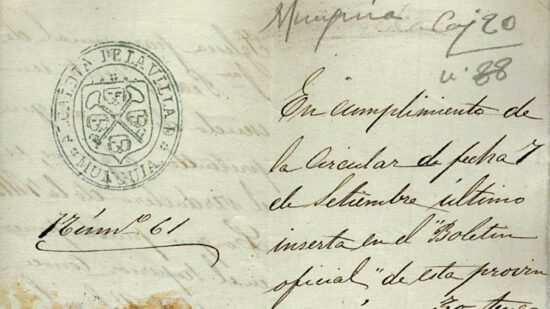 Munguia Caj 20
n. 88
ALCALDIA DE LA VILLA DE MUNGUIA
Núm.º 61
En cumplimiento de
la Circular de fecha 7
de Setiembre último
inserta en el "Boletin
oficial" de esta provin